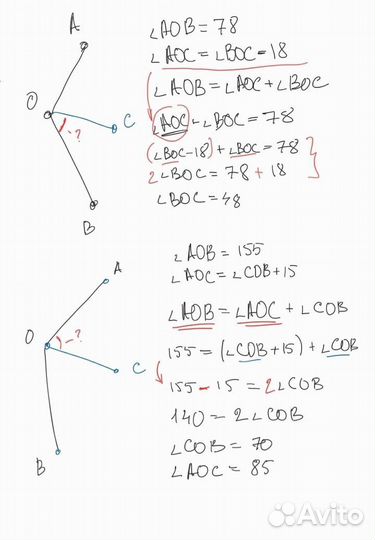 A
O
C
-?
B
∠AOB = 78
∠AOC = ∠BOC - 18
∠AOB = ∠AOC + ∠BOC
∠AOC + ∠BOC = 78
(∠BOC - 18) + ∠BOC = 78
2∠BOC = 78 + 18
∠BOC = 48
A
O
-?
C
B
∠AOB = 155
∠AOC = ∠COB + 15
∠AOB = ∠AOC + ∠COB
155 = (∠COB + 15) + ∠COB
155 - 15 = 2∠COB
140 = 2∠COB
∠COB = 70
∠AOC = 85
Avito